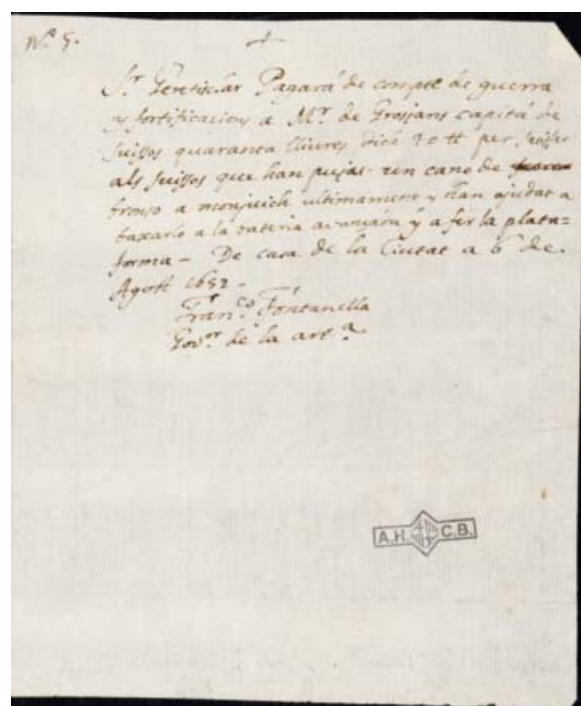 Nº 5.
Sr Gentischar Pagará de compte de guerra
y fortificacions a Mr. de Grosjans capitá de
suissos quaranta lliures dich 40 ll per
als suissos que han pujat un cano de
bronso a monjuich ultimament y han ajudat a
baxarlo a la bateria avansada y a fer la plata=
forma - De casa de la Ciutat a 6 de
Agost 1652 -
Franco. Fontanella
Govor de la arta
A.H. C.B.